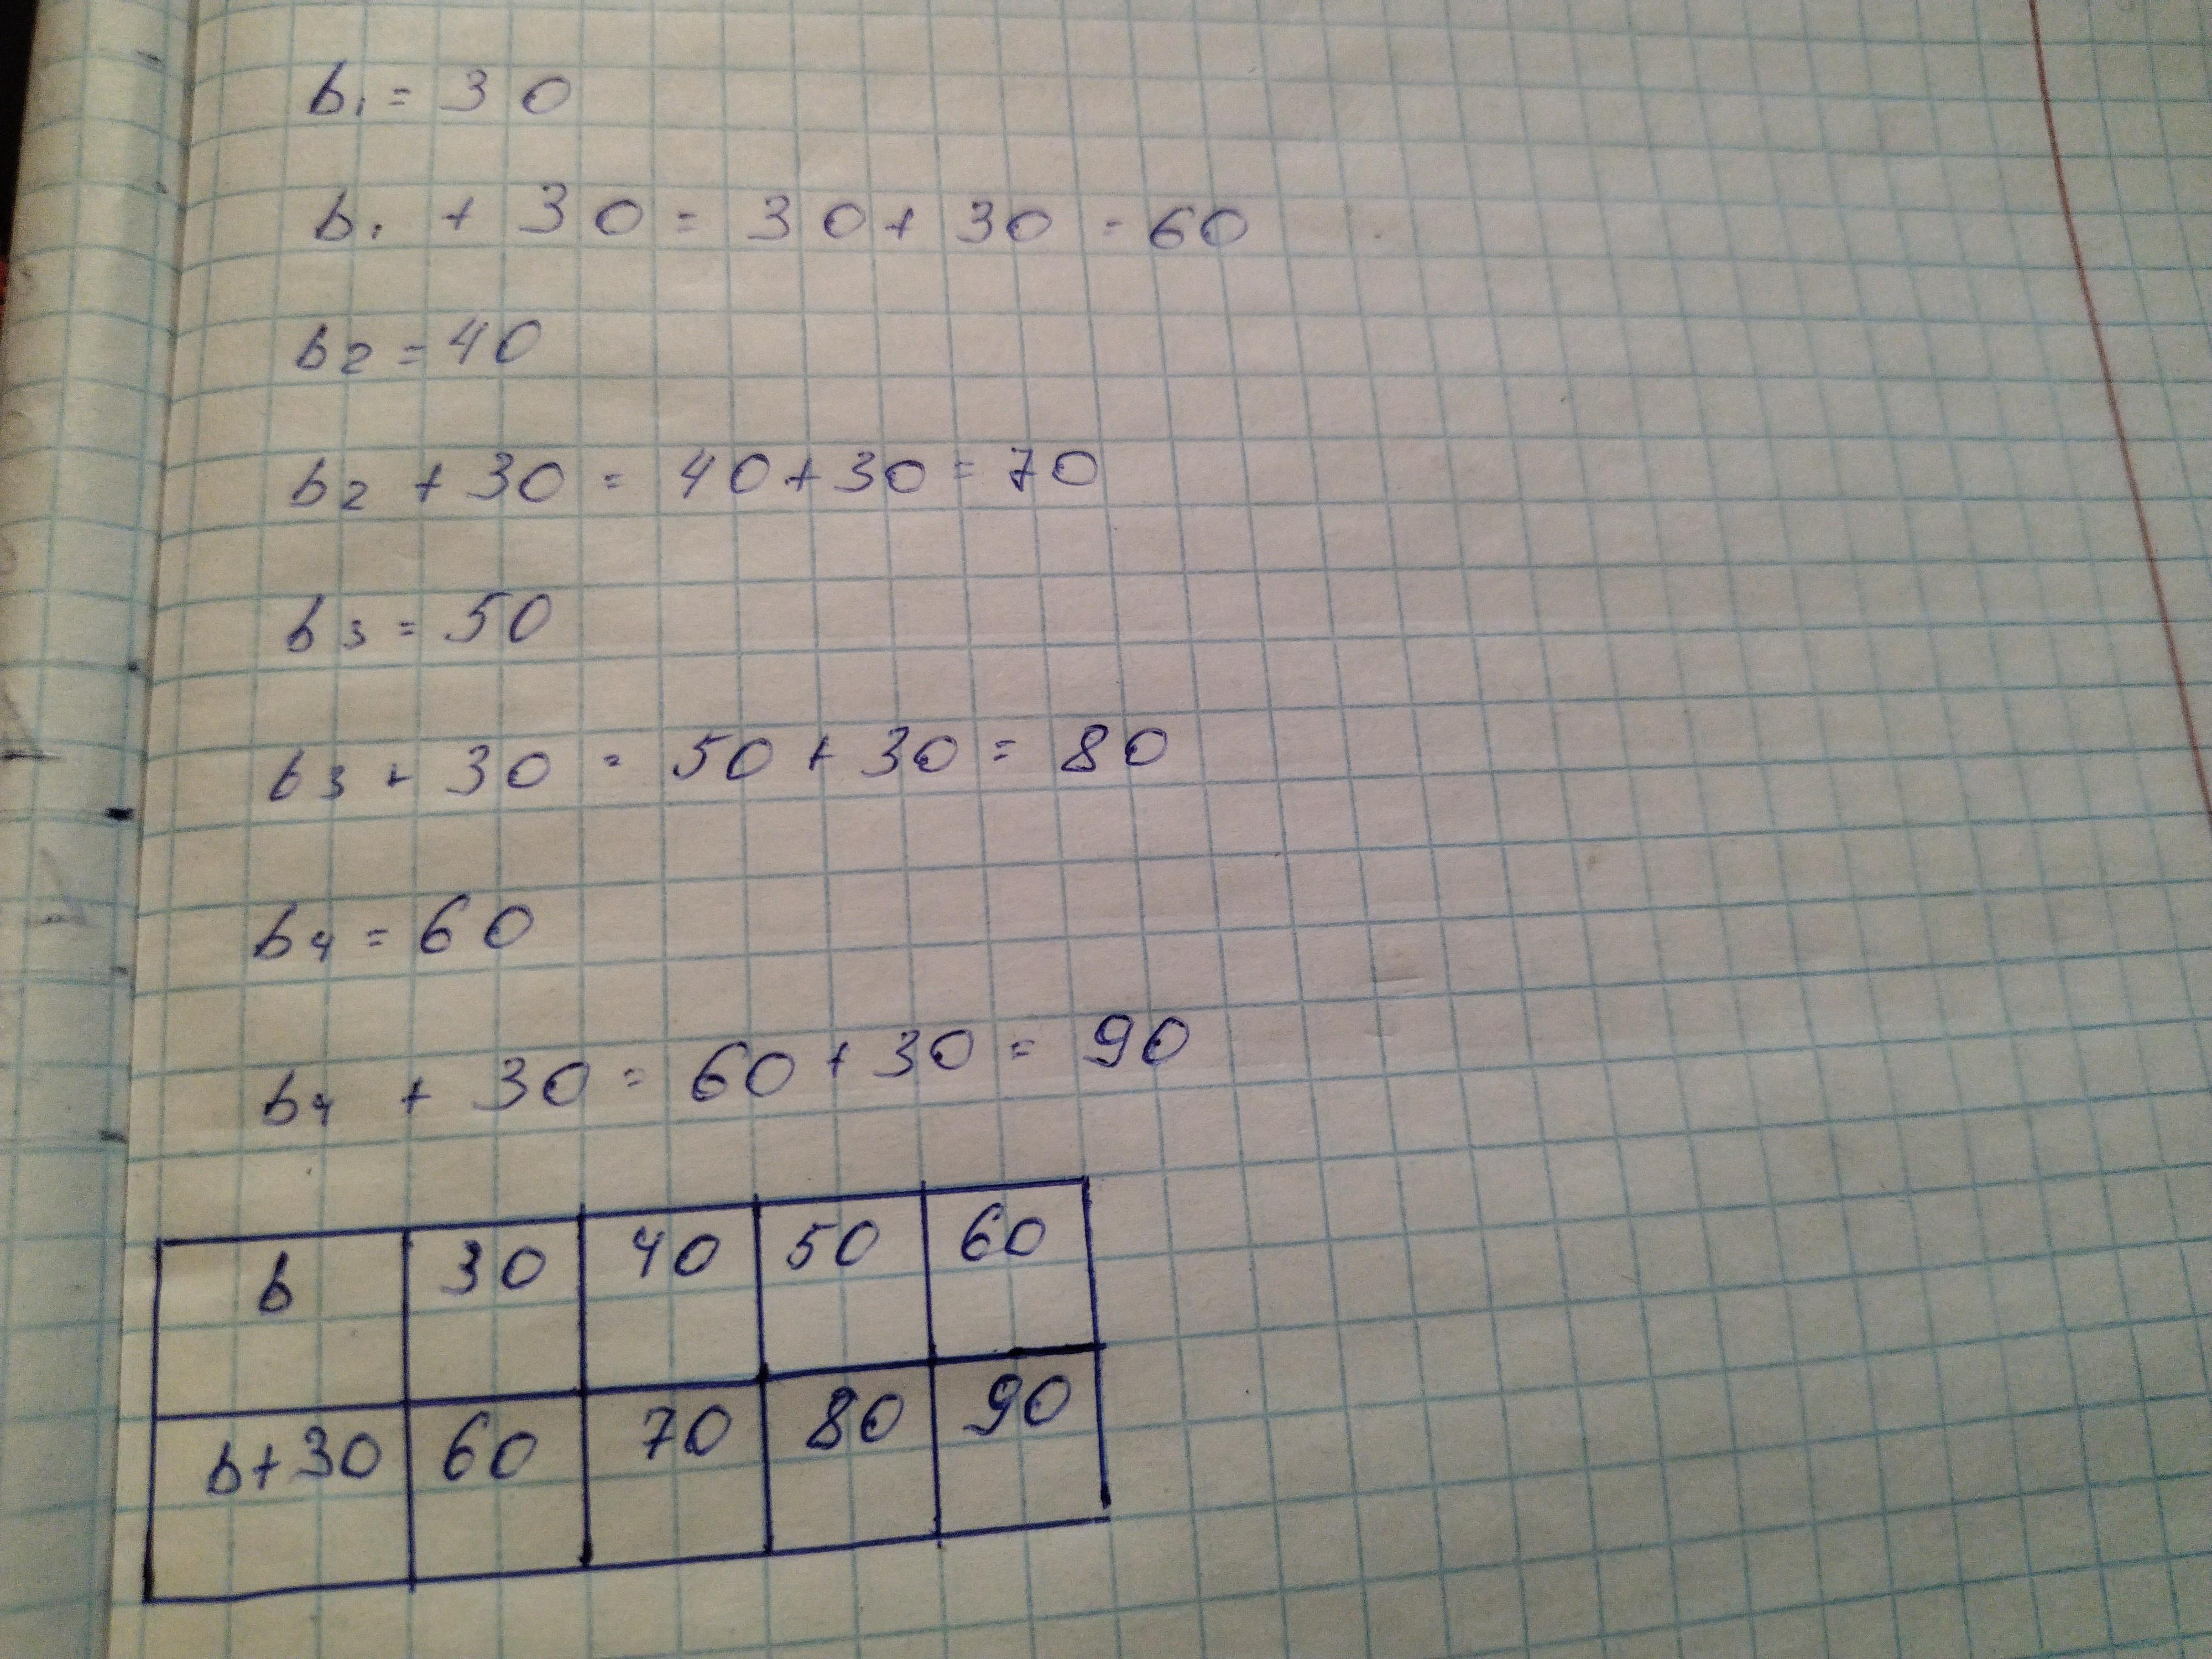 b₁ = 30
b₁ + 30 = 30 + 30 = 60
b₂ = 40
b₂ + 30 = 40 + 30 = 70
b₃ = 50
b₃ + 30 = 50 + 30 = 80
b₄ = 60
b₄ + 30 = 60 + 30 = 90
b 30 40 50 60
b+30 60 70 80 90